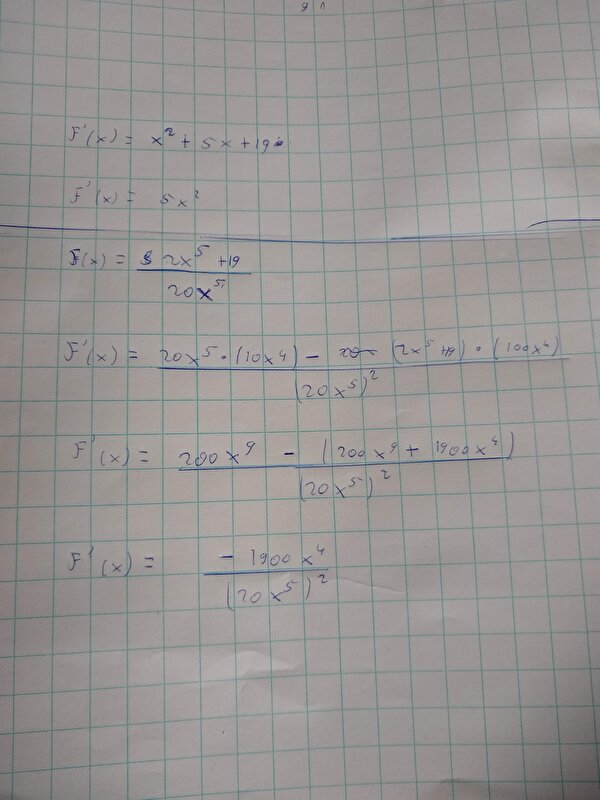 F'(x) = x² + 5x + 19
F'(x) = 5x²
F(x) = 2x⁵ + 19 / 20x⁵
F'(x) = 20x⁵ · (10x⁴) − (2x⁵ + 19) · (100x⁴) / (20x⁵)²
F'(x) = 200x⁹ − (200x⁹ + 1900x⁴) / (20x⁵)²
F'(x) = − 1900x⁴ / (20x⁵)²